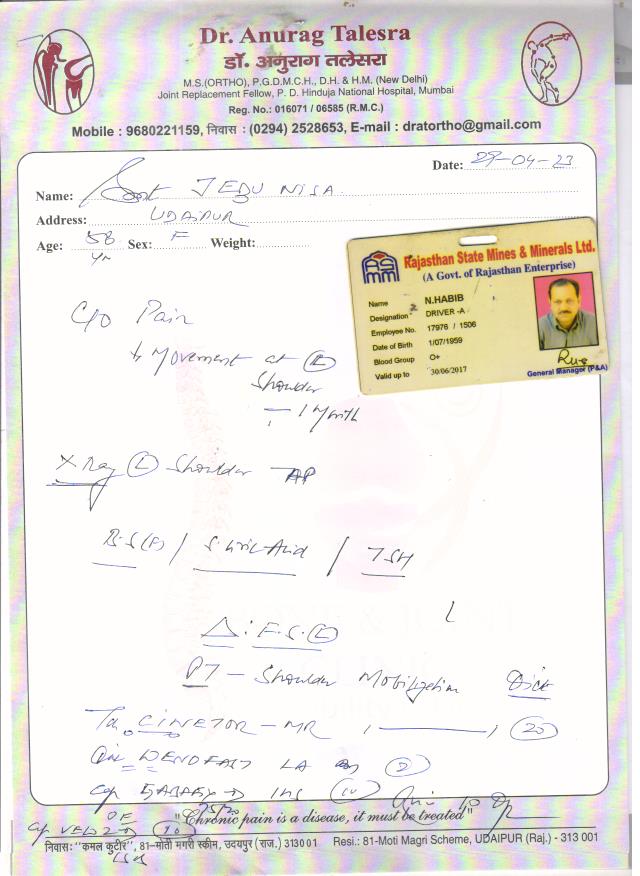 Dr. Anurag Talesra
डॉ. अनुराग तलेसरा
M.S.(ORTHO), P.G.D.M.C.H., D.H. & H.M. (New Delhi)
Joint Replacement Fellow, P. D. Hinduja National Hospital, Mumbai
Reg. No.: 016071 / 06585 (R.M.C.)
Mobile : 9680221159, निवास : (0294) 2528653, E-mail : dratortho@gmail.com
Date: 29-04-23
Name: JEDU NISA
Address: UDAIPUR
Age: 58 yr Sex: F Weight:
RSMM
Rajasthan State Mines & Minerals Ltd.
(A Govt. of Rajasthan Enterprise)
Name N.HABIB
Designation DRIVER -A
Employee No. 17976 / 1506
Date of Birth 1/07/1959
Blood Group O+
Valid up to 30/06/2017
General Manager (P&A)
C/o Pain
↓ Movement at (L)
Shoulder
1 Month
X Ray (L) Shoulder AP
/ S. Uric Acid / TSH
Δ: F.S. (L)
PT - Shoulder Mobilization
CINETOR - MR (20)
LA
(10)
"Chronic pain is a disease, it must be treated"
(10)
निवास: "कमल कुटीर", 81-मोती मगरी स्कीम, उदयपुर (राज.) 313001 Resi.: 81-Moti Magri Scheme, UDAIPUR (Raj.) - 313 001